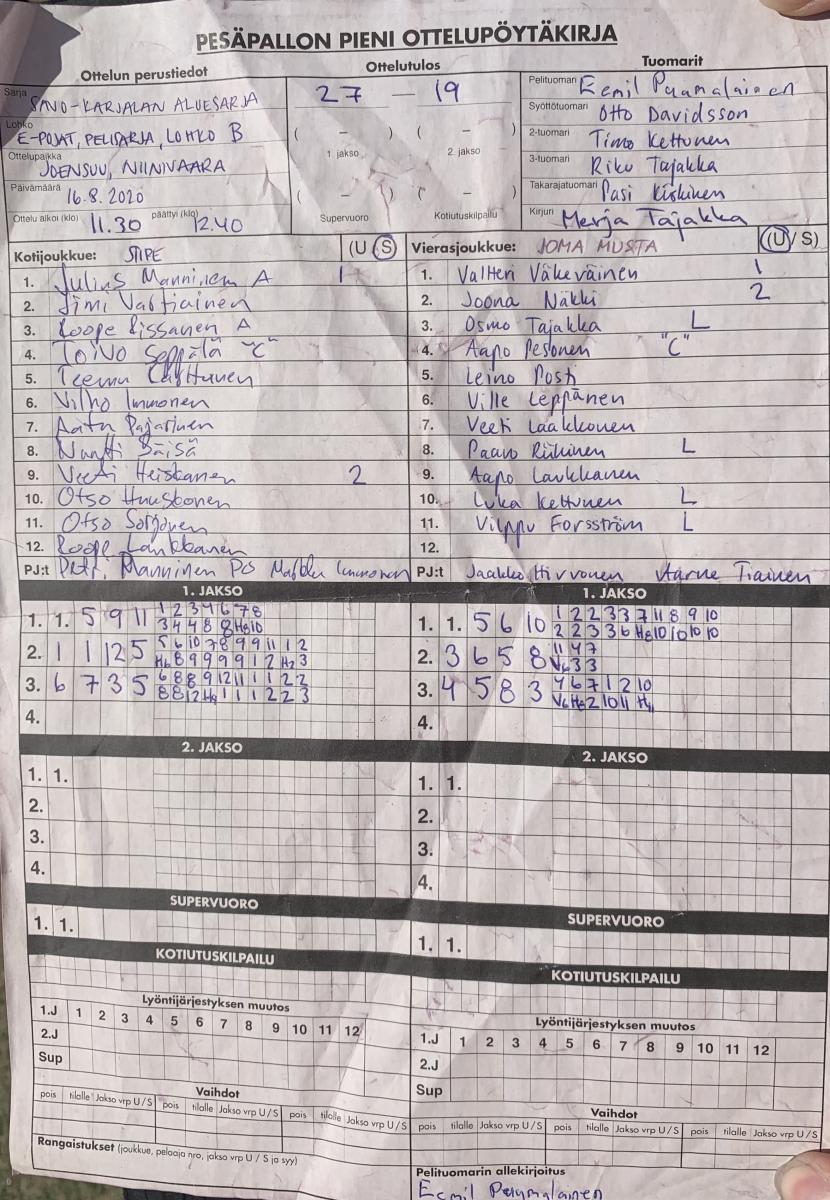 PESÄPALLON PIENI OTTELUPÖYTÄKIRJA
Ottelun perustiedot
Sarja
SAVO-KARJALAN ALUESARJA
Lohko
E-POJAT, PELISARJA, LOHKO B
Ottelupaikka
JOENSUU, NIINIVAARA
Päivämäärä
16.8.2020
Ottelu alkoi (klo) 11.30 päättyi (klo) 12.40
Ottelutulos
27 — 19
( – ) ( – )
1 jakso 2. jakso
( – ) ( – )
Supervuoro Kotiutuskilpailu
Tuomarit
Pelituomari Eemil Puumalainen
Syöttötuomari Otto Davidsson
2-tuomari Timo Kettunen
3-tuomari Riku Tajakka
Takarajatuomari Pasi Kiskinen
Kirjuri Merja Tajakka
Kotijoukkue: SIIPE (U S)
1. Julius Manninen A 1
2. Jimi Vastiainen
3. Roope Rissanen A
4. Toivo Seppälä "C"
5. Teemu
6. Vilho Immonen
7. Aatu Pajarinen
8. Räisä
9. Veeti Heiskanen 2
10. Otso Huuskonen
11. Otso Sorjonen
12. Roope Laukkanen
PJ:t Petri Manninen Immonen
Vierasjoukkue: JOMA MUSTA (U/S)
1. Valtteri Väkeväinen 1
2. Joona Näkki 2
3. Osmo Tajakka L
4. Aapo Pesonen "C"
5. Leino Posti
6. Ville Leppänen
7. Veeti Laakkonen
8. Paavo Riikinen L
9. Aapo Laukkanen
10. Luka Kettunen L
11. Vilppu Forsström L
12.
PJ:t Jaakko Hirvonen Aarne Tiainen
1. JAKSO
1. 1. 5 9 11 1 2 3 4 6 7 8
3 4 4 8 8 H8 10
2. 1 1 12 5 5 6 10 7 8 9 9 11 1 2
H6 8 9 9 9 9 1 2 H2 3
3. 6 7 3 5 6 8 8 9 12 1 1 1 2 2
8 8 12 H9 1 1 1 2 2 3
4.
2. JAKSO
1. 1.
2.
3.
4.
SUPERVUORO
1. 1.
KOTIUTUSKILPAILU
Lyöntijärjestyksen muutos
1.J 1 2 3 4 5 6 7 8 9 10 11 12
2.J
Sup
Vaihdot
pois tilalle Jakso vrp U/S pois tilalle Jakso vrp U/S pois tilalle Jakso vrp U/S
Rangaistukset (joukkue, pelaaja nro, jakso vrp U / S ja syy)
1. JAKSO
1. 1. 5 6 10 1 2 2 3 3 7 11 8 9 10
2 2 3 3 6 H8 10 10 10 10
2. 3 6 5 8 11 4 7
V6 3 3
3. 4 5 8 3 4 6 7 1 2 10
V6 H6 2 10 11 H11
4.
2. JAKSO
1. 1.
2.
3.
4.
SUPERVUORO
1. 1.
KOTIUTUSKILPAILU
Lyöntijärjestyksen muutos
1.J 1 2 3 4 5 6 7 8 9 10 11 12
2.J
Sup
Vaihdot
pois tilalle Jakso vrp U/S pois tilalle Jakso vrp U/S pois tilalle Jakso vrp U/S
Pelituomarin allekirjoitus
Eemil Puumalainen